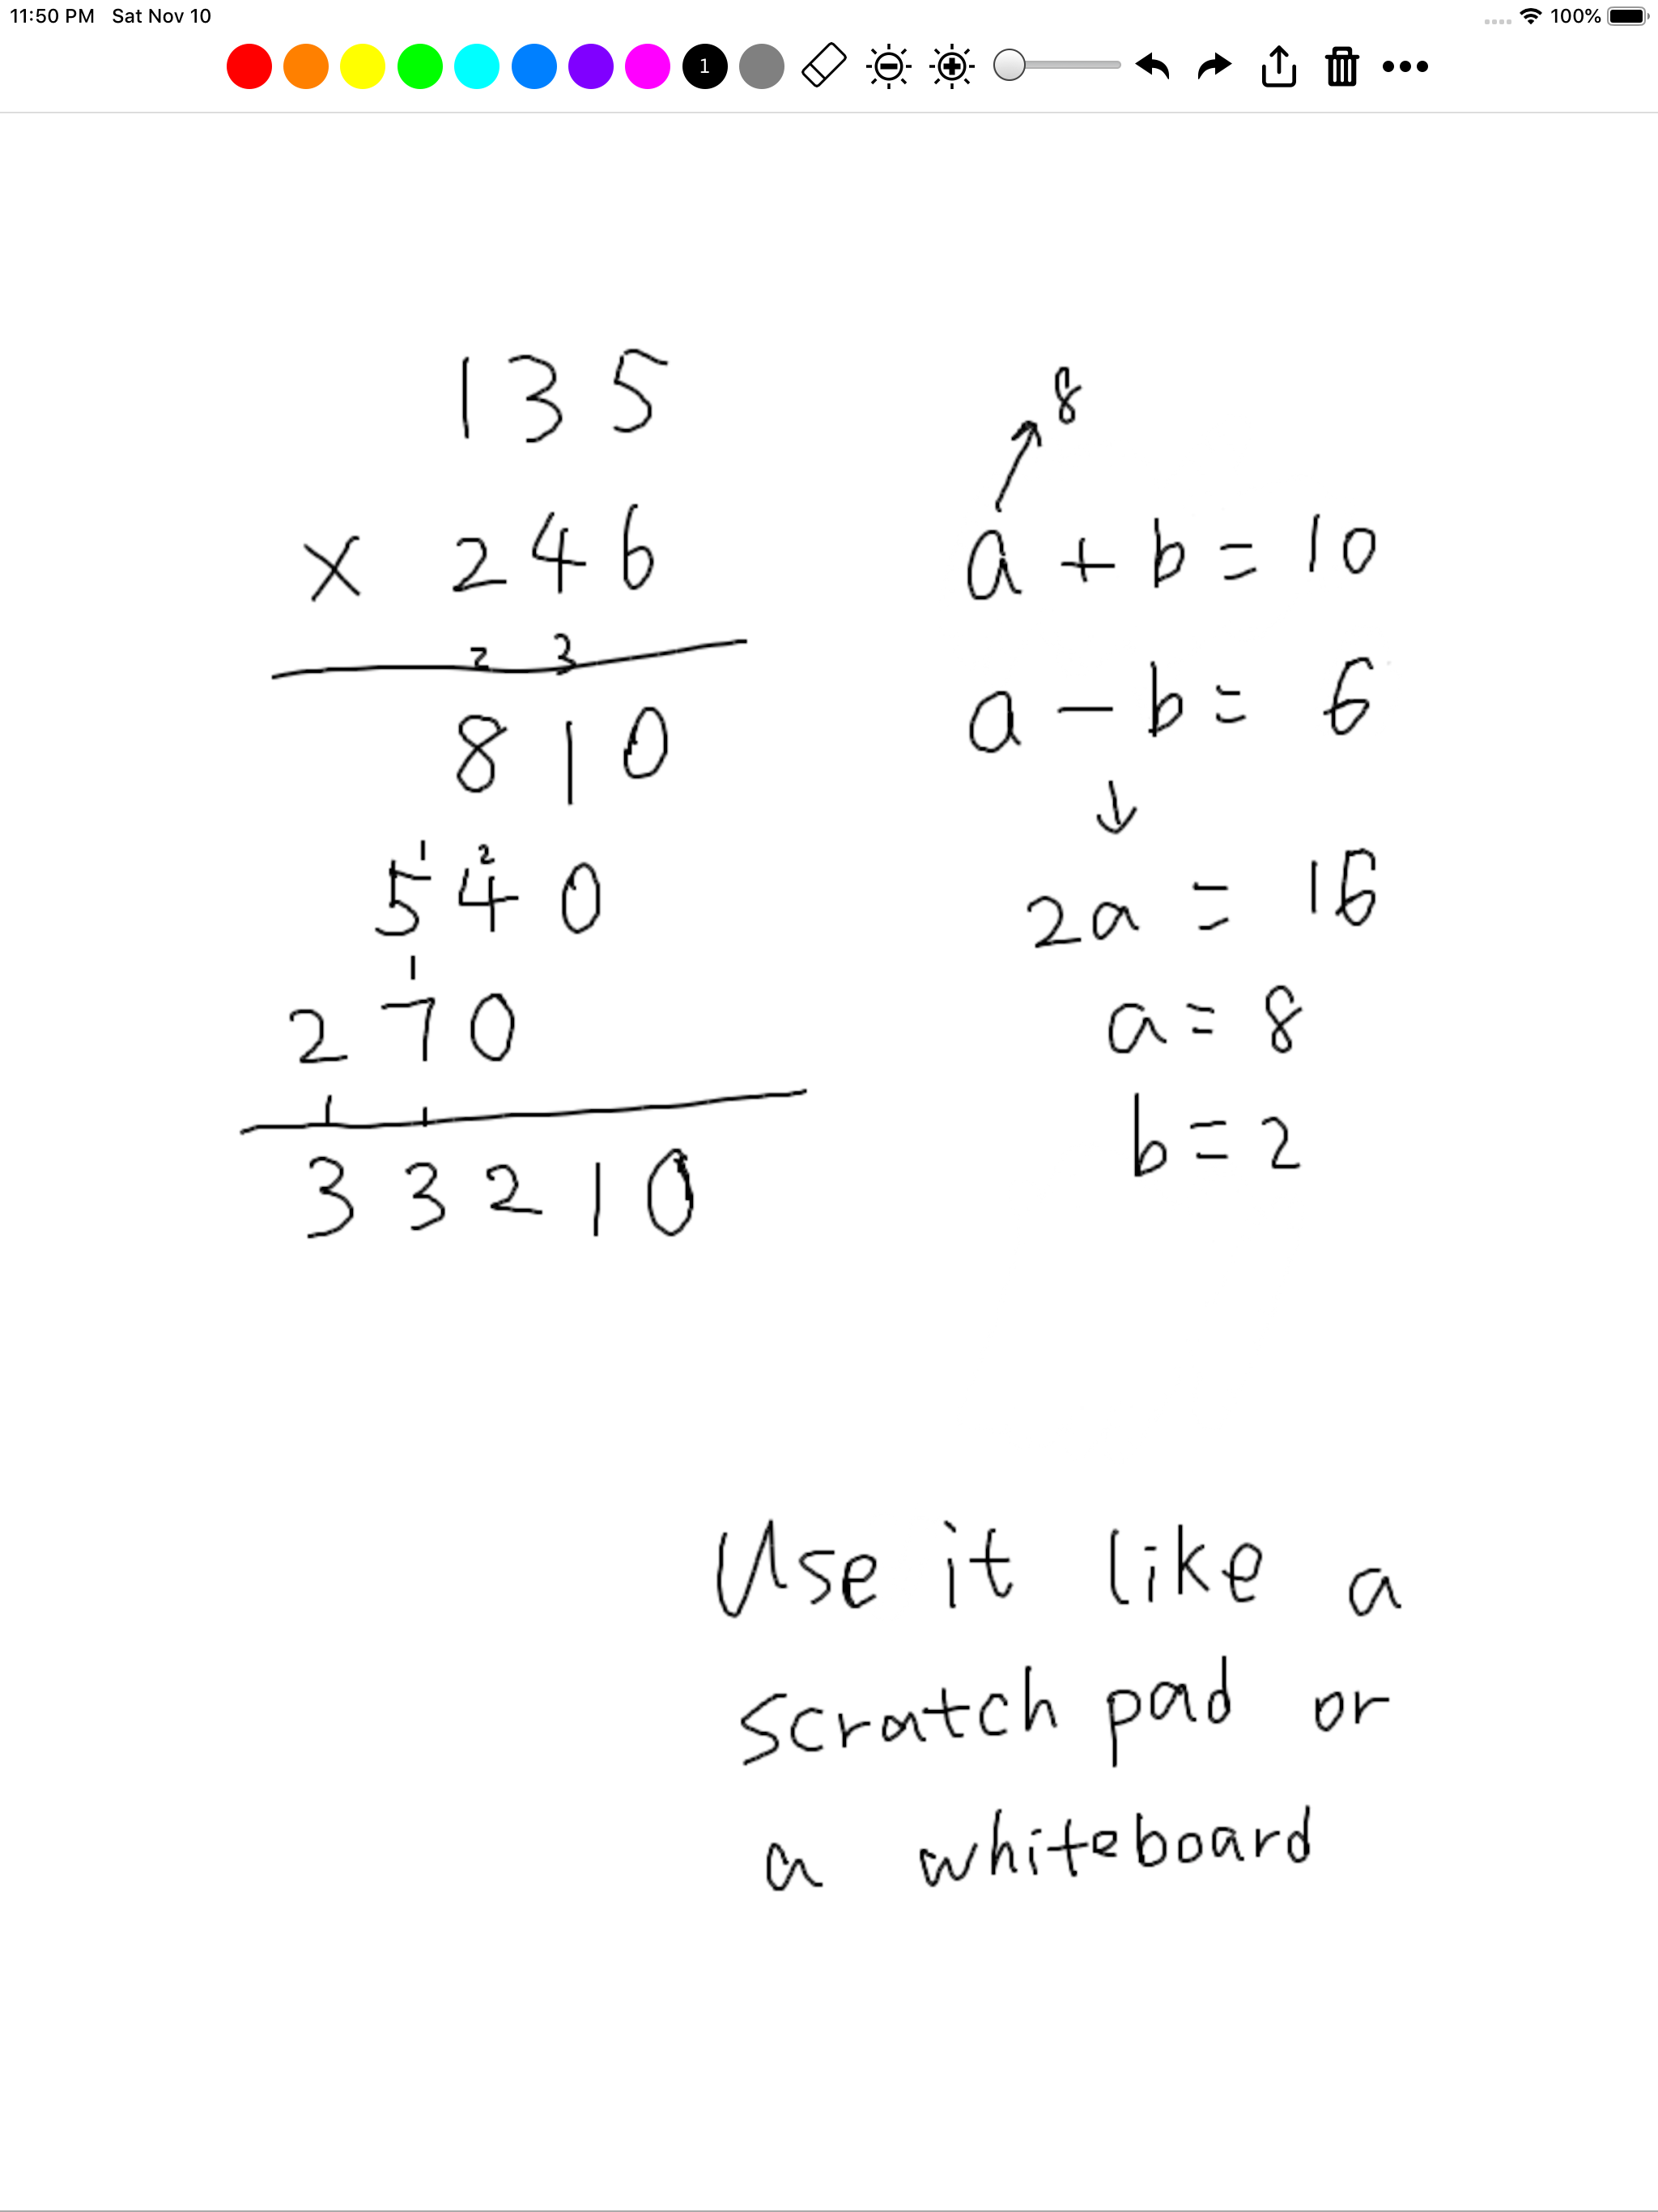 11:50 PM Sat Nov 10
100%
1
135
× 246
2 3
810
1 2
540
1
270
1 1
33210
8
a + b = 10
a - b = 6
↓
2a = 16
a = 8
b = 2
Use it like a
scratch pad or
a whiteboard